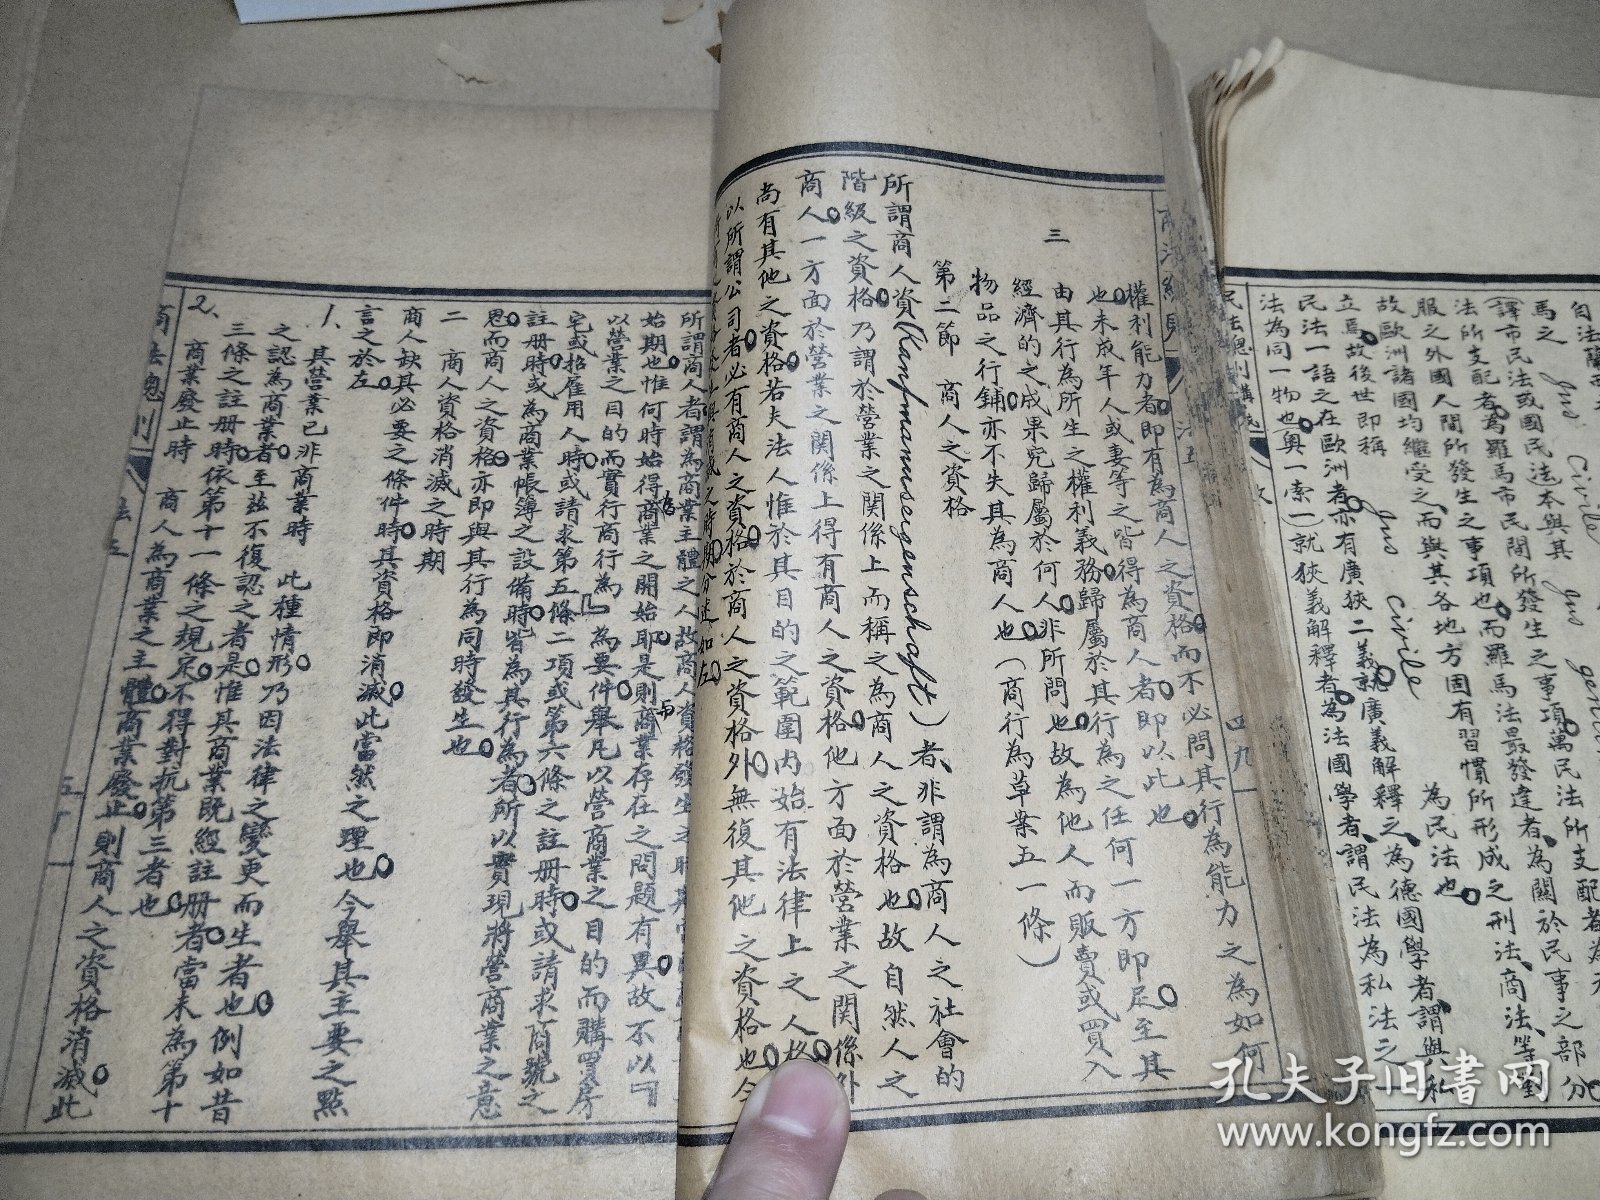 權利能力者即有為商人之資格而不必問其行為能力之為如何
也未成年人或妻等之皆得為商人者即以此也
三
由其行為所生之權利義務歸屬於其行為之任何一方即足至其
經濟的之成果究歸屬於何人非所問也故為他人而販賣或買入
物品之行鋪亦不失其為商人也(商行為草案五一條)
第二節 商人之資格
所謂商人資(Kanfmannsergenschaft)者非謂為商人之社會的
階級之資格乃謂於營業之關係上而稱之為商人之資格也故自然人之
商人一方面於營業之關係上得有商人之資格他方面於營業之關係外
尚有其他之資格若夫法人惟於其目的之範圍內始有法律上之人格
以所謂公司者必有商人之資格於商人之資格外無復其他之資格也今
之時期分述如左
所謂商人者謂為商業主體之人故商人資格發生之時期
始期也惟何時始得商業之開始耶是則商業存在之問題有異故不以
以營業之目的而實行商行為』為要件舉凡以營商業之目的而購買房
宅或招雇用人時或請求第五條二項或第六條之註册時或請求商號之
註册時或為商業帳簿之設備時皆為其行為者所以實現將營商業之意
思而商人之資格亦即與其行為同時發生也
二 商人資格消滅之時期
商人缺其必要之條件時其資格即消滅此當然之理也今舉其主要之點
言之於左
1、其營業已非商業時 此種情形乃因法律之變更而生者也例如昔
之認為商業者至茲不復認之者是惟其商業既經註册者當未為第十
三條之註册時依第十一條之規定不得對抗第三者也
2、商業發止時 商人為商業之主體商業廢止則商人之資格消滅此
商法總則
法五
民法總則講義
馬之 jus civile
譯市民法或國民法本與其 jus
法所支配者為羅馬市民間所發生之事項也而羅馬法最發達者為關於民事之部分
服之外國人間所發生之事項也
故歐洲諸國均繼受之而與其各地方固有習慣所形成之刑法、商法、等對
立焉故後世即稱 jus civile 為民法也
民法一語之在歐洲者亦有廣狹二義就廣義解釋之為德國學者謂與私
法為同一物也奧(索一)就狹義解釋者為法國學者謂民法為私法之一
孔夫子旧書网
www.kongfz.com